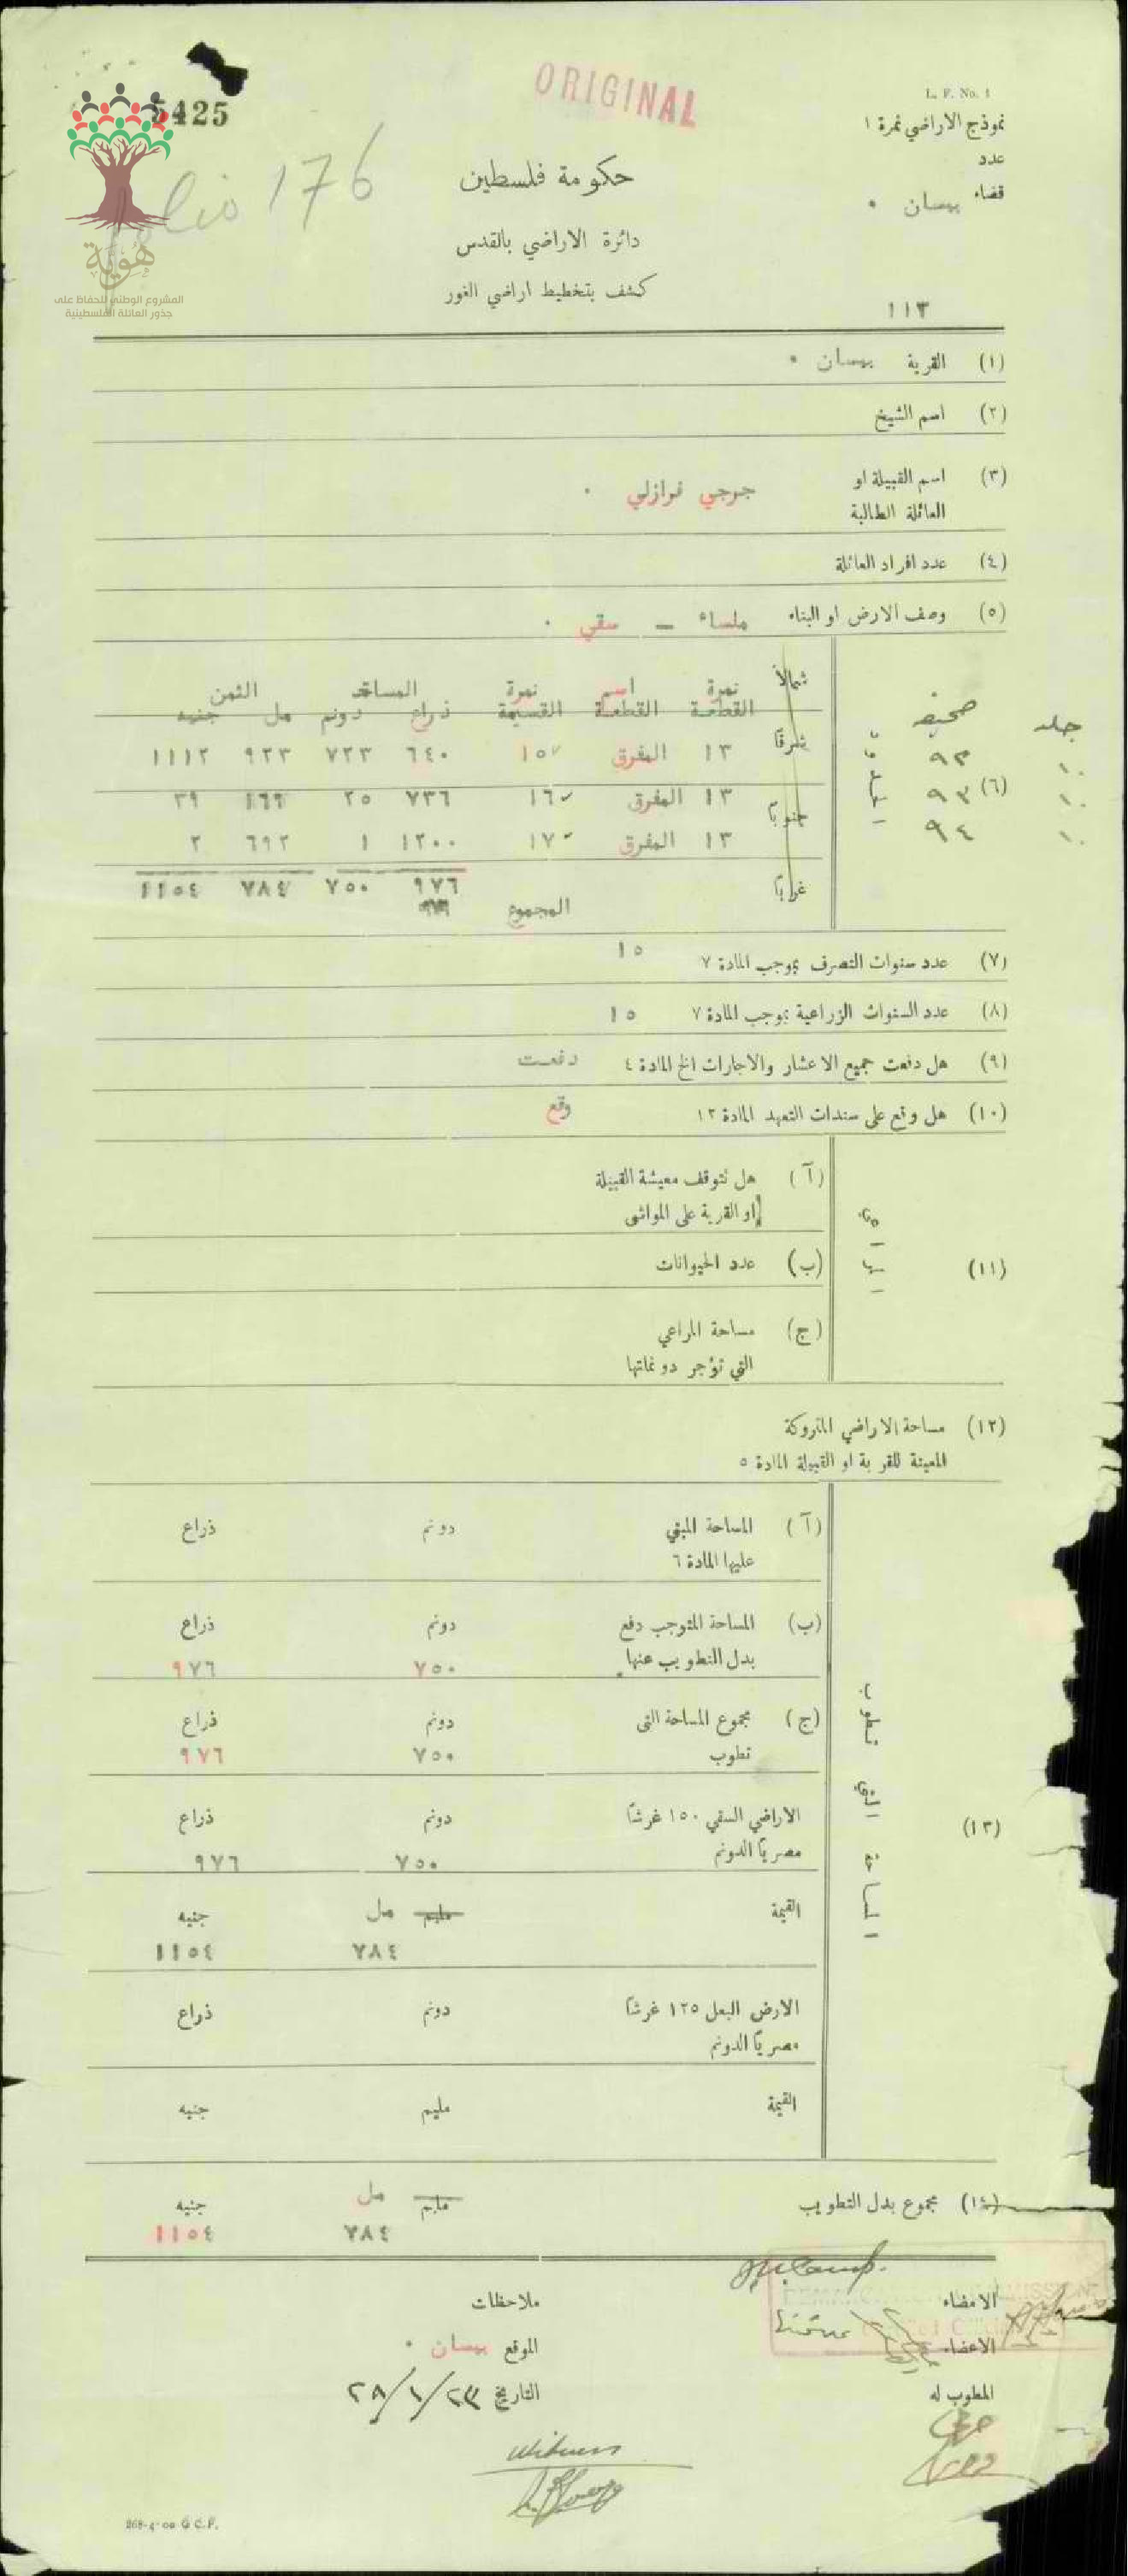 ORIGINAL
L. F. No. 1
5425
نموذج الاراضي نمرة ١
عدد
قضاء بيسان ٠
Folio 176
حكومة فلسطين
دائرة الاراضي بالقدس
كشف بتخطيط اراضي الغور
١١٣
هُوِيَّة
المشروع الوطني للحفاظ على
جذور العائلة الفلسطينية
(١) القرية بيسان ٠
(٢) اسم الشيخ
(٣) اسم القبيلة او جرجي فرازلي ٠
العائلة الطالبة
(٤) عدد افراد العائلة
(٥) وصف الارض او البناء ملساء — سقي ٠
جلد صحيفة شمالاً نمرة القطعة اسم القطعة نمرة القسيمة المساحة ذراع دونم الثمن مل جنيه
١٠ ٩٣ شرقاً ١٣ المفرق ١٥ ٦٤٠ ٧٢٣ ٩٢٣ ١١١٢
(٦) الحدود
١٠ ٩٣ جنوباً ١٣ المفرق ١٦ ٧٣٦ ٢٥ ١٦٦ ٣٩
١٠ ٩٤ ١٣ المفرق ١٧ ١٢٠٠ ١ ٦٩٢ ٢
غرباً ٩٧٦ ٧٥٠ ٧٨٤ ١١٥٤
المجموع
(٧) عدد سنوات التصرف بموجب المادة ٧ ١٥
(٨) عدد السنوات الزراعية بموجب المادة ٧ ١٥
(٩) هل دفعت جميع الاعشار والاجارات الخ المادة ٤ دفعت
(١٠) هل وقع على سندات التعهد المادة ١٢ وقع
(١١) المراعي
(آ) هل تتوقف معيشة القبيلة
او القرية على المواشي
(ب) عدد الحيوانات
(ج) مساحة المراعي
التي تؤجر دونماتها
(١٢) مساحة الاراضي المتروكة
المعينة للقرية او القبيلة المادة ٥
(١٣) المساحة التي تطوب
(آ) المساحة المبني دونم ذراع
عليها المادة ٦
(ب) المساحة المتوجب دفع دونم ذراع
بدل التطويب عنها ٧٥٠ ٩٧٦
(ج) مجموع المساحة التي دونم ذراع
تطوب ٧٥٠ ٩٧٦
الاراضي السقي ١٥٠ غرشاً دونم ذراع
مصرياً الدونم ٧٥٠ ٩٧٦
القيمة مليم مل جنيه
٧٨٤ ١١٥٤
الارض البعل ١٢٥ غرشاً دونم ذراع
مصرياً الدونم
القيمة مليم جنيه
(١٤) مجموع بدل التطويب مليم مل جنيه
٧٨٤ ١١٥٤
الامضاء
ملاحظات
الاعضاء
الموقع بيسان ٠
المطوب له
التاريخ ٢٨/١/٢٣
Witness
268-4-00 G C.P.